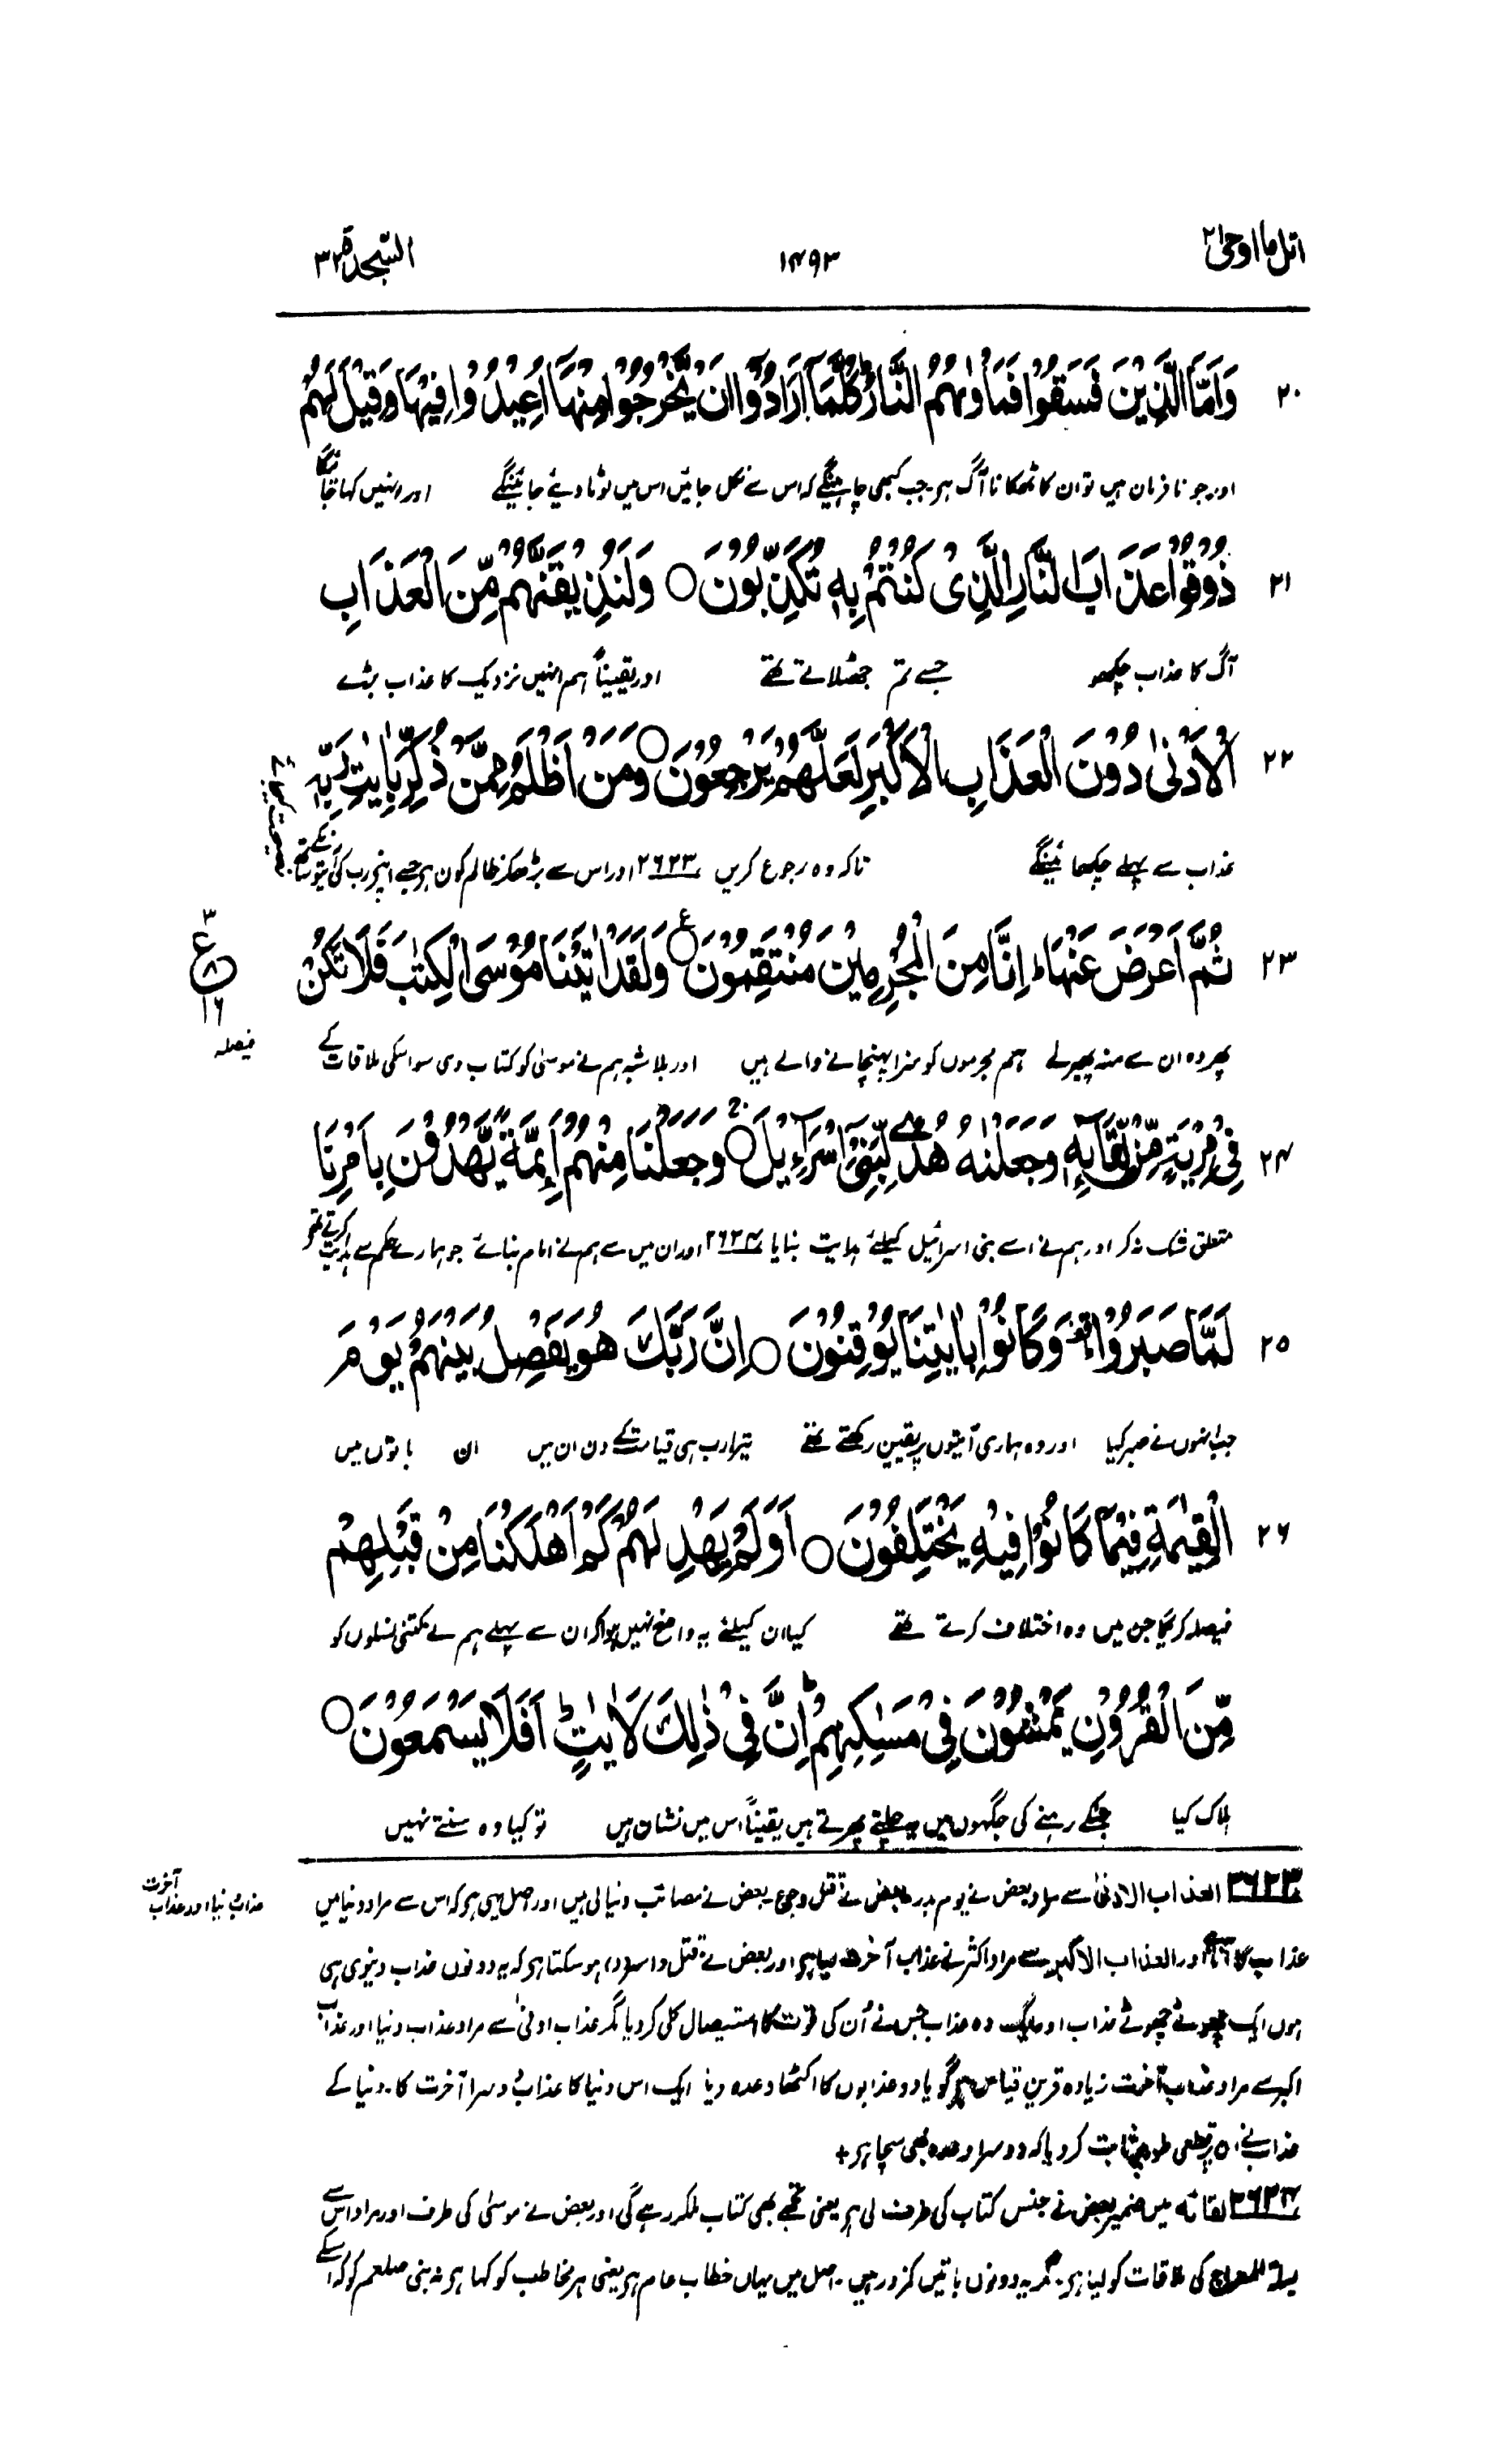 اتل ما اوحی ۲۱
۱۴۹۳
السّجدة ۳۲
۲۰ وَاَمَّا الَّذِيْنَ فَسَقُوْا فَمَاْوٰىهُمُ النَّارُ ؕ كُلَّمَاۤ اَرَادُوْۤا اَنْ يَّخْرُجُوْا مِنْهَاۤ اُعِيْدُوْا فِيْهَا وَقِيْلَ لَهُمْ
اور جو نافرمان ہیں تو ان کا ٹھکانا آگ ہو۔ جب کبھی چاہینگے کہ اس سے نکل جائیں اس میں لوٹا دیئے جائینگے اور انہیں کہا جائیگا
۲۱ ذُوْقُوْا عَذَابَ النَّارِ الَّذِىْ كُنْتُمْ بِهٖ تُكَذِّبُوْنَ ○ وَلَنُذِيْقَنَّهُمْ مِّنَ الْعَذَابِ
آگ کا عذاب چکھو جسے تم جھٹلاتے تھے اور یقیناً ہم انہیں نزدیک کا عذاب بڑے
۲۲ الْاَدْنٰى دُوْنَ الْعَذَابِ الْاَكْبَرِ لَعَلَّهُمْ يَرْجِعُوْنَ ○ وَمَنْ اَظْلَمُ مِمَّنْ ذُكِّرَ بِاٰيٰتِ رَبِّهٖ
عذاب سے پہلے چکھائینگے تاکہ وہ رجوع کریں ۲۶۲۳ اور اس سے بڑھکر ظالم کون ہو جسے اپنے رب کی آیتوں سے
۲۳ ثُمَّ اَعْرَضَ عَنْهَا ؕ اِنَّا مِنَ الْمُجْرِمِيْنَ مُنْتَقِمُوْنَ ○ ع وَلَقَدْ اٰتَيْنَا مُوْسَى الْكِتٰبَ فَلَا تَكُنْ
۳
ع
۸
۱۶
پھر وہ ان سے منہ پھیرلے ہم مجرموں کو سزا پہنچانے والے ہیں اور بلاشبہ ہم نے موسیٰ کو کتاب دی سو اسکی ملاقات کے
فیصلہ
۲۴ فِىْ مِرْيَةٍ مِّنْ لِّقَآئِهٖ وَجَعَلْنٰهُ هُدًى لِّبَنِىْۤ اِسْرَآءِيْلَ ○ وَجَعَلْنَا مِنْهُمْ اَئِمَّةً يَّهْدُوْنَ بِاَمْرِنَا
متعلق شک نہ کر اور ہم نے اسے بنی اسرائیل کیلئے ہدایت بنایا ۲۶۲۴ اور ان میں سے ہم نے امام بنائے جو ہمارے حکم سے ہدایت کرتے تھے
۲۵ لَمَّا صَبَرُوْا ۗ وَكَانُوْا بِاٰيٰتِنَا يُوْقِنُوْنَ ○ اِنَّ رَبَّكَ هُوَ يَفْصِلُ بَيْنَهُمْ يَوْمَ
جب انہوں نے صبر کیا اور وہ ہماری آیتوں پر یقین رکھتے تھے تیرا رب ہی قیامت کے دن ان میں ان باتوں میں
۲۶ الْقِيٰمَةِ فِيْمَا كَانُوْا فِيْهِ يَخْتَلِفُوْنَ ○ اَوَلَمْ يَهْدِ لَهُمْ كَمْ اَهْلَكْنَا مِنْ قَبْلِهِمْ
فیصلہ کریگا جن میں وہ اختلاف کرتے تھے کیا ان کیلئے یہ واضح نہیں ہوا کہ ان سے پہلے ہم نے کتنی نسلوں کو
مِّنَ الْقُرُوْنِ يَمْشُوْنَ فِىْ مَسٰكِنِهِمْ ؕ اِنَّ فِىْ ذٰلِكَ لَاٰيٰتٍ ؕ اَفَلَا يَسْمَعُوْنَ ○
ہلاک کیا جنکے رہنے کی جگہوں میں یہ چلتے پھرتے ہیں یقیناً اس میں نشان ہیں تو کیا وہ سنتے نہیں
عذاب دنیا اور عذاب آخرت
۲۶۲۳ العذاب الادنیٰ سے مراد بعض نے یوم بدر بعض نے قتل وجوع۔ بعض نے مصائب دنیا لی ہیں اور اصل یہی ہو کہ اس سے مراد دنیا میں
عذاب کا آنا اور العذاب الاکبر سے مراد اکثر نے عذاب آخرت لیا ہو اور بعض نے قتل و اسر (د) ہو سکتا ہو کہ یہ دونوں عذاب دنیوی ہی
ہوں ایک چھوٹے چھوٹے عذاب اور ایک وہ عذاب جس نے اُن کی قوت کا استیصال کلی کردیا مگر عذاب ادنیٰ سے مراد عذاب دنیا اور عذاب
اکبر سے مراد عذاب آخرت زیادہ قرین قیاس ہو گویا دو عذابوں کا اکٹھا وعدہ دیا ایک اس دنیا کا عذاب دوسرا آخرت کا۔ دنیا کے
عذاب نے قطعی طور پر ثابت کردیا کہ دوسرا وعدہ بھی سچا ہو +
۲۶۲۴ لقائہ میں ضمیر بعض نے جنس کتاب کی طرف لی ہو یعنی تجھے بھی کتاب ملکر رہے گی اور بعض نے موسیٰ کی طرف اور مراد اس سے
لیلۃ المعراج کی ملاقات کو لیا ہو۔ مگر یہ دونوں باتیں کمزور ہیں۔ اصل میں یہاں خطاب عام ہو یعنی ہر مخاطب کو کہا ہو نہ نبی صلعم کو کہ اسکے